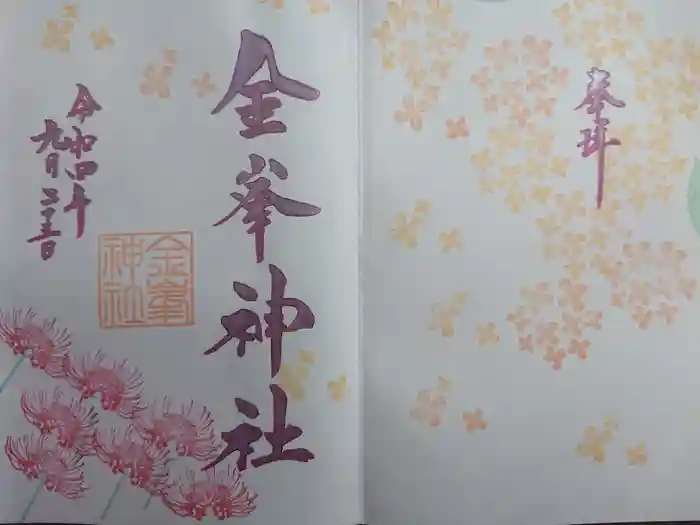 奉拝
金峯神社
金峯
神社
令和四年
九月二十五日